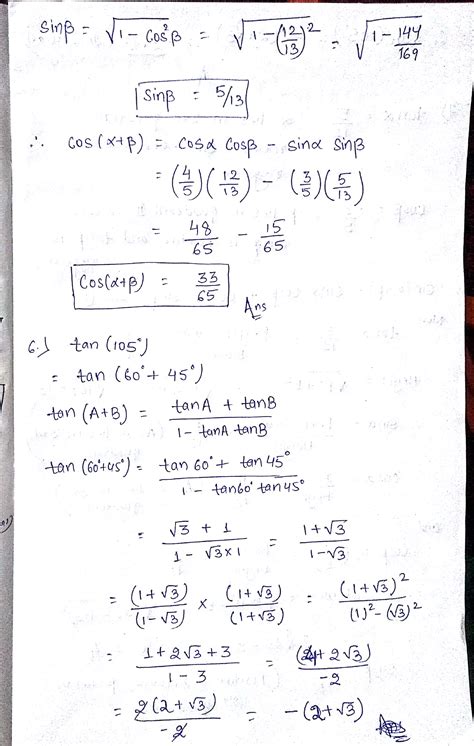 sinβ = √(1 - cos²β) = √(1 - (12/13)²) = √(1 - 144/169)
sinβ = 5/13
∴ cos(α+β) = cosα cosβ - sinα sinβ
= (4/5)(12/13) - (3/5)(5/13)
= 48/65 - 15/65
cos(α+β) = 33/65
Ans
6.) tan (105°)
= tan (60° + 45°)
tan (A+B) = (tanA + tanB)/(1 - tanA tanB)
tan (60°+45°) = (tan60° + tan45°)/(1 - tan60° tan45°)
= (√3 + 1)/(1 - √3×1) = (1+√3)/(1-√3)
= (1+√3)/(1-√3) × (1+√3)/(1+√3) = (1+√3)²/((1)²-(√3)²)
= (1+2√3+3)/(1-3) = (4+2√3)/-2
= 2(2+√3)/-2 = -(2+√3) Ans